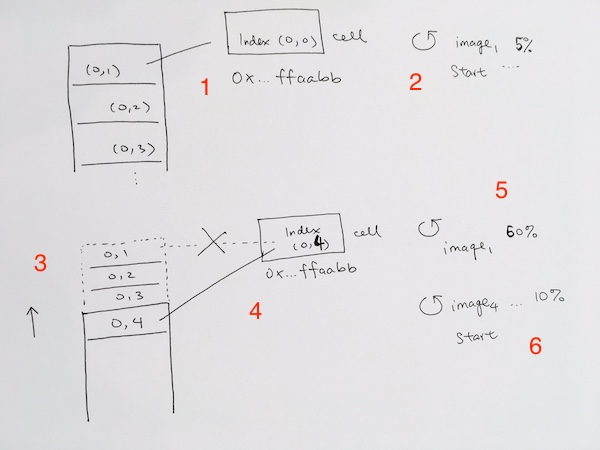 Index (0,0)
cell
image1 5%
(0,1)
Start ....
1
0x...ffaabb
2
(0,2)
(0,3)
5
Index
(0,4)
cell
60%
image1
3
0,1
0,2
0x...ffaabb
0,3
4
image4 ... 10%
0,4
Start
6